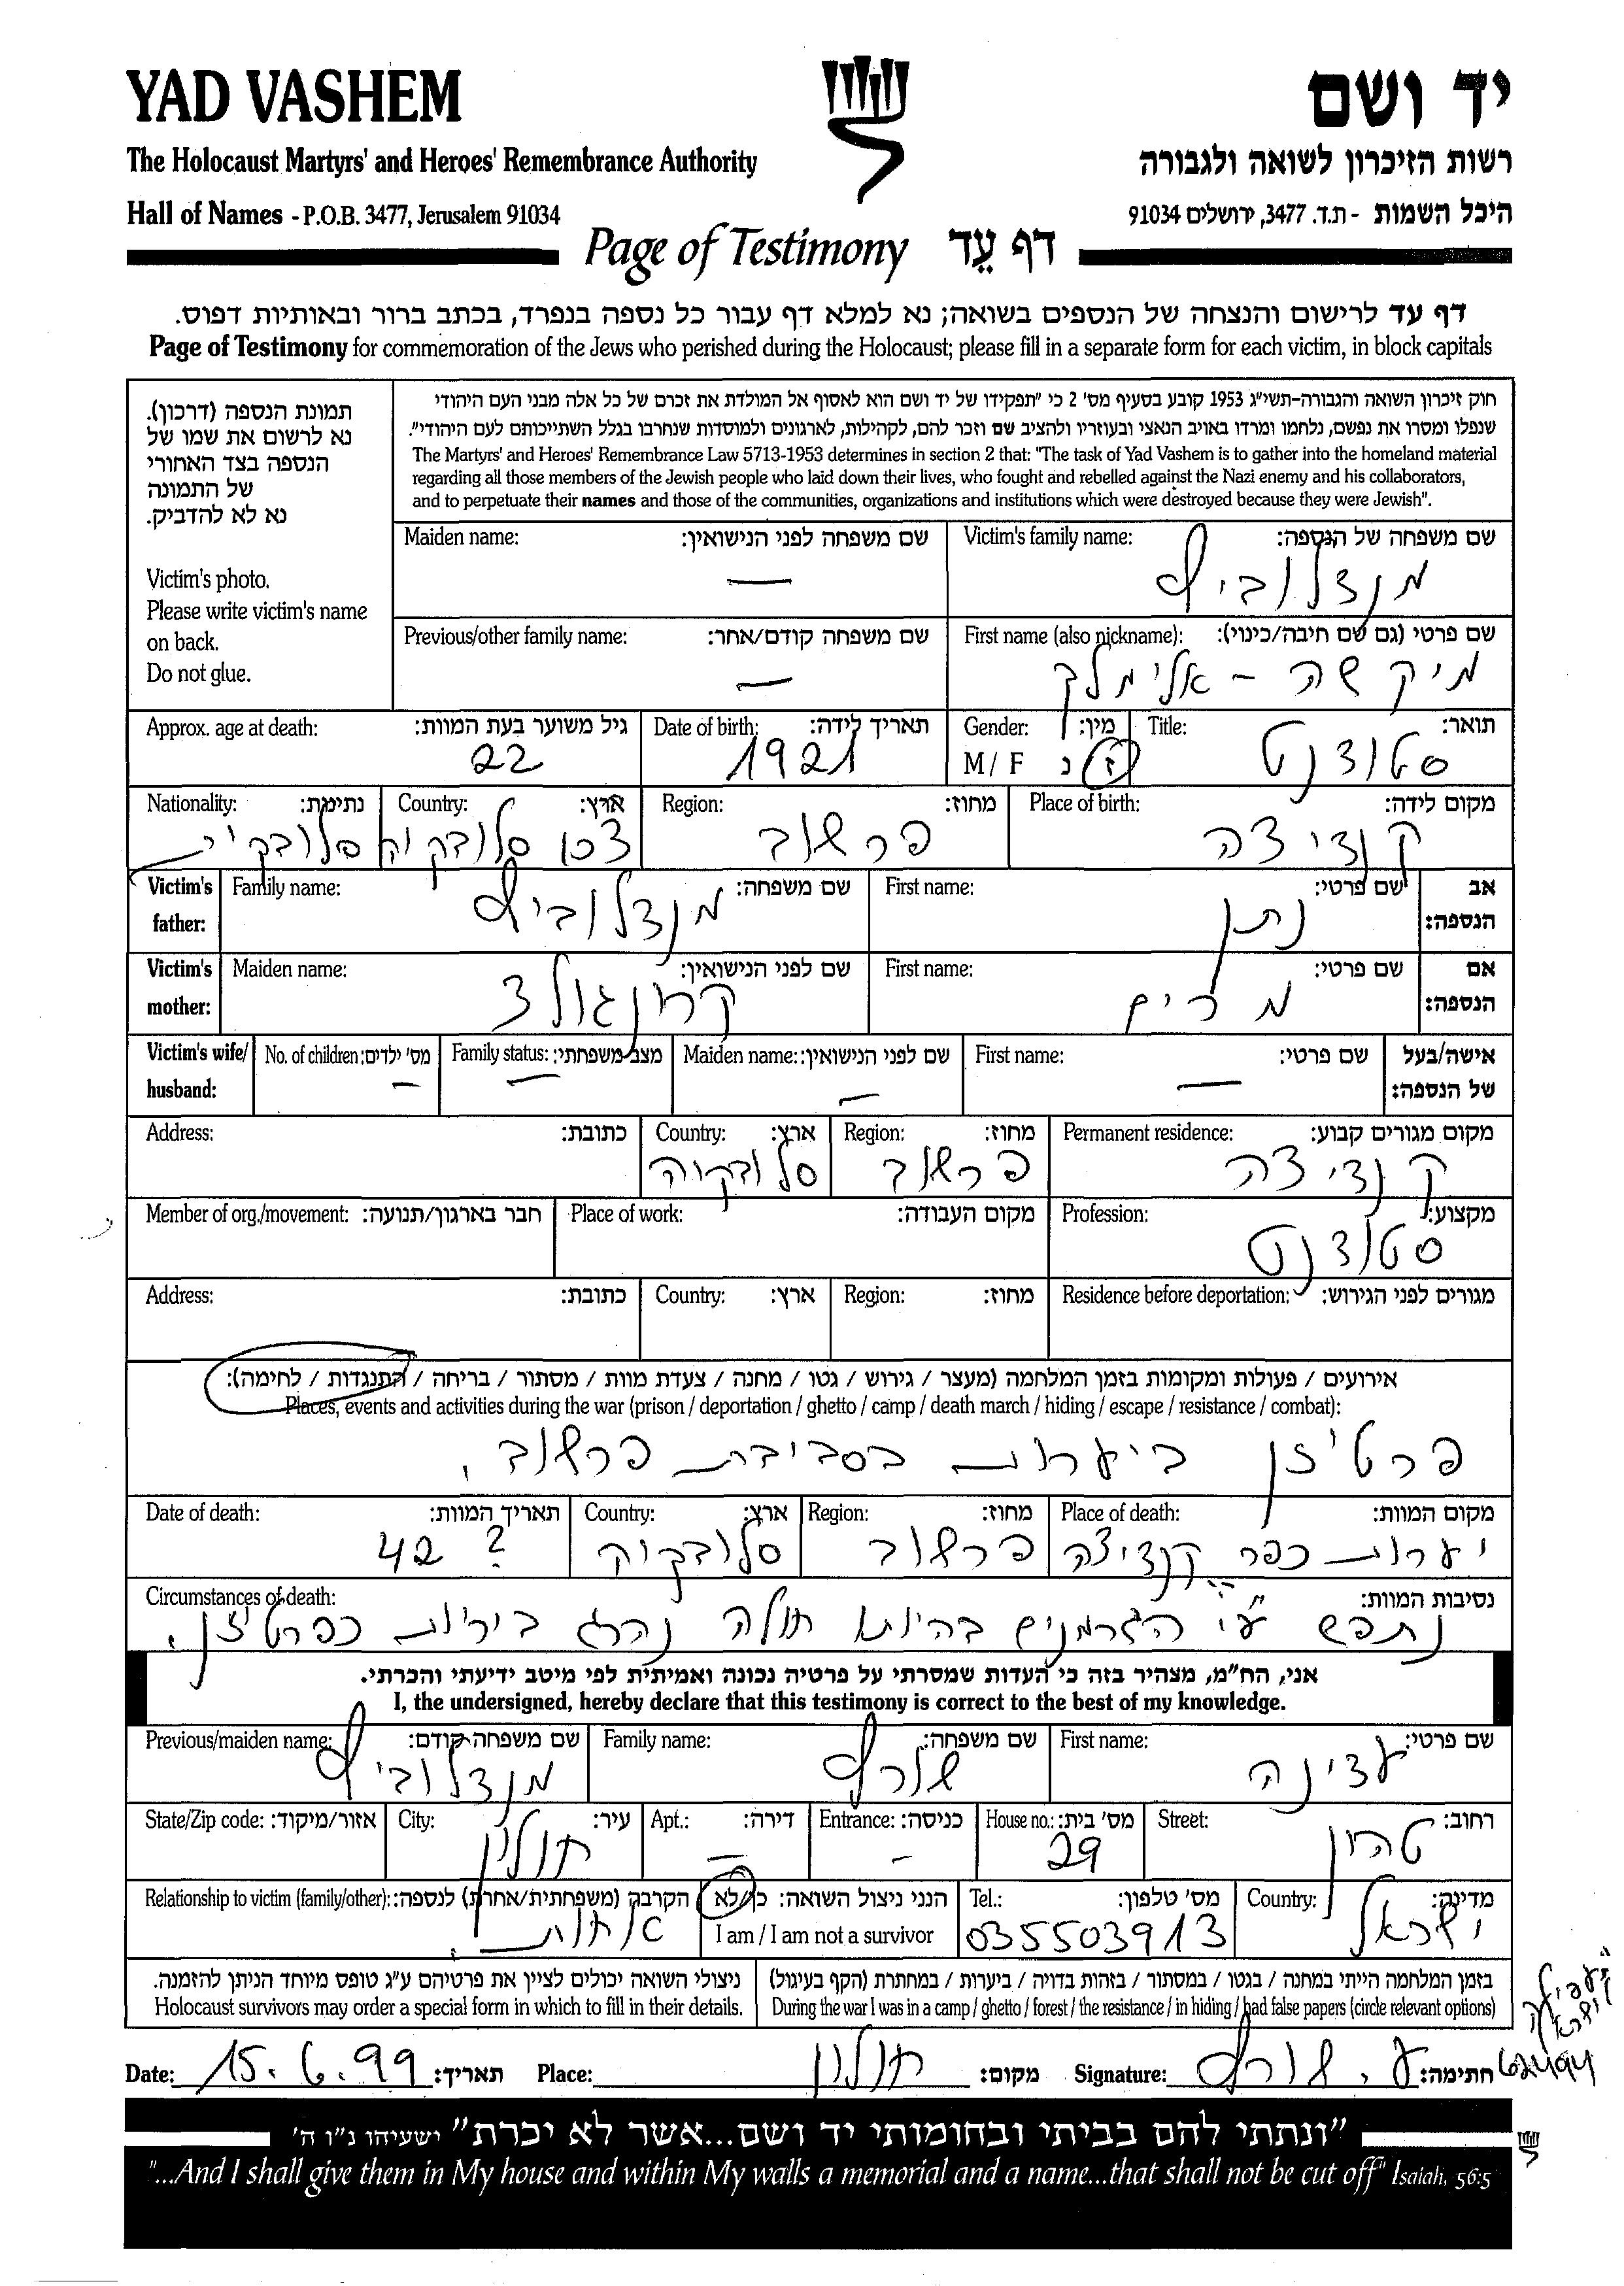 YAD VASHEM
יד ושם
The Holocaust Martyrs' and Heroes' Remembrance Authority
רשות הזיכרון לשואה ולגבורה
Hall of Names - P.O.B. 3477, Jerusalem 91034
היכל השמות - ת.ד. 3477, ירושלים 91034
Page of Testimony דף עֵד
דף עד לרישום והנצחה של הנספים בשואה; נא למלא דף עבור כל נספה בנפרד, בכתב ברור ובאותיות דפוס.
Page of Testimony for commemoration of the Jews who perished during the Holocaust; please fill in a separate form for each victim, in block capitals
תמונת הנספה (דרכון).
נא לרשום את שמו של
הנספה בצד האחורי
של התמונה
נא לא להדביק.
Victim's photo.
Please write victim's name
on back.
Do not glue.
חוק זיכרון השואה והגבורה-תשי"ג 1953 קובע בסעיף מס' 2 כי "תפקידו של יד ושם הוא לאסוף אל המולדת את זכרם של כל אלה מבני העם היהודי
שנפלו ומסרו את נפשם, נלחמו ומרדו באויב הנאצי ובעוזריו ולהציב שם וזכר להם, לקהילות, לארגונים ולמוסדות שנחרבו בגלל השתייכותם לעם היהודי".
The Martyrs' and Heroes' Remembrance Law 5713-1953 determines in section 2 that: "The task of Yad Vashem is to gather into the homeland material
regarding all those members of the Jewish people who laid down their lives, who fought and rebelled against the Nazi enemy and his collaborators,
and to perpetuate their names and those of the communities, organizations and institutions which were destroyed because they were Jewish".
Victim's family name: שם משפחה של הנספה:
מנדלוביץ
Maiden name: שם משפחה לפני הנישואין:
—
First name (also nickname): שם פרטי (גם שם חיבה/כינוי):
מיקשה - אלימלך
Previous/other family name: שם משפחה קודם/אחר:
—
Title: תואר:
סטודנט
Gender: מין:
M / F ז נ
Date of birth: תאריך לידה:
1921
Approx. age at death: גיל משוער בעת המוות:
22
Place of birth: מקום לידה:
קנדיצה
Region: מחוז:
פרשוב
Country: ארץ:
צכו סלובקיה
Nationality: נתינות:
סלובקית
Victim's father: אב הנספה:
First name: שם פרטי:
נתן
Family name: שם משפחה:
מנדלוביץ
Victim's mother: אם הנספה:
First name: שם פרטי:
מרים
Maiden name: שם לפני הנישואין:
קרונגולד
Victim's wife/ husband: אישה/בעל של הנספה:
First name: שם פרטי:
—
Maiden name: שם לפני הנישואין:
—
Family status: מצב משפחתי:
—
No. of children: מס' ילדים:
—
Permanent residence: מקום מגורים קבוע:
קנדיצה
Region: מחוז:
פרשוב
Country: ארץ:
סלובקיה
Address: כתובת:
Profession: מקצוע:
סטודנט
Place of work: מקום העבודה:
Member of org./movement: חבר בארגון/תנועה:
Residence before deportation: מגורים לפני הגירוש:
Region: מחוז:
Country: ארץ:
Address: כתובת:
אירועים / פעולות ומקומות בזמן המלחמה (מעצר / גירוש / גטו / מחנה / צעדת מוות / מסתור / בריחה / התנגדות / לחימה):
Places, events and activities during the war (prison / deportation / ghetto / camp / death march / hiding / escape / resistance / combat):
פרטיזן ביערות בסביבת פרשוב.
Place of death: מקום המוות:
יערות כפר קנדיצה
Region: מחוז:
פרשוב
Country: ארץ:
סלובקיה
Date of death: תאריך המוות:
? 42
Circumstances of death: נסיבות המוות:
נתפש ע"י הגרמנים בהיותו חולה נהרג ביריות כפרטיזן.
אני, הח"מ, מצהיר בזה כי העדות שמסרתי על פרטיה נכונה ואמיתית לפי מיטב ידיעתי והכרתי.
I, the undersigned, hereby declare that this testimony is correct to the best of my knowledge.
First name: שם פרטי:
עדינה
Family name: שם משפחה:
שורץ
Previous/maiden name: שם משפחה קודם:
מנדלוביץ
Street: רחוב:
טהון
House no.: מס' בית:
29
Entrance: כניסה:
-
Apt.: דירה:
—
City: עיר:
חולון
State/Zip code: אזור/מיקוד:
Country: מדינה:
ישראל
Tel.: מס' טלפון:
035503913
הנני ניצול השואה: כן/לא
I am / I am not a survivor
Relationship to victim (family/other): הקרבה (משפחתית/אחרת) לנספה:
אחות.
בזמן המלחמה הייתי במחנה / בגטו / במסתור / בזהות בדויה / ביערות / במחתרת (הקף בעיגול)
During the war I was in a camp / ghetto / forest / the resistance / in hiding / had false papers (circle relevant options)
ניצולי השואה יכולים לציין את פרטיהם ע"ג טופס מיוחד הניתן להזמנה.
Holocaust survivors may order a special form in which to fill in their details.
Date: 15.6.99 תאריך:
Place: חולון מקום:
Signature: ע. שורץ חתימה:
"ונתתי להם בביתי ובחומותי יד ושם...אשר לא יכרת" ישעיהו נ"ו ה'
"...And I shall give them in My house and within My walls a memorial and a name...that shall not be cut off" Isaiah, 56:5